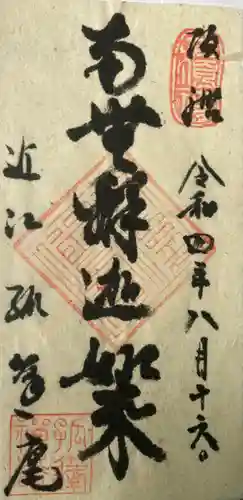 令和四年八月十六日
南無釋迦如来
近江孤篷庵